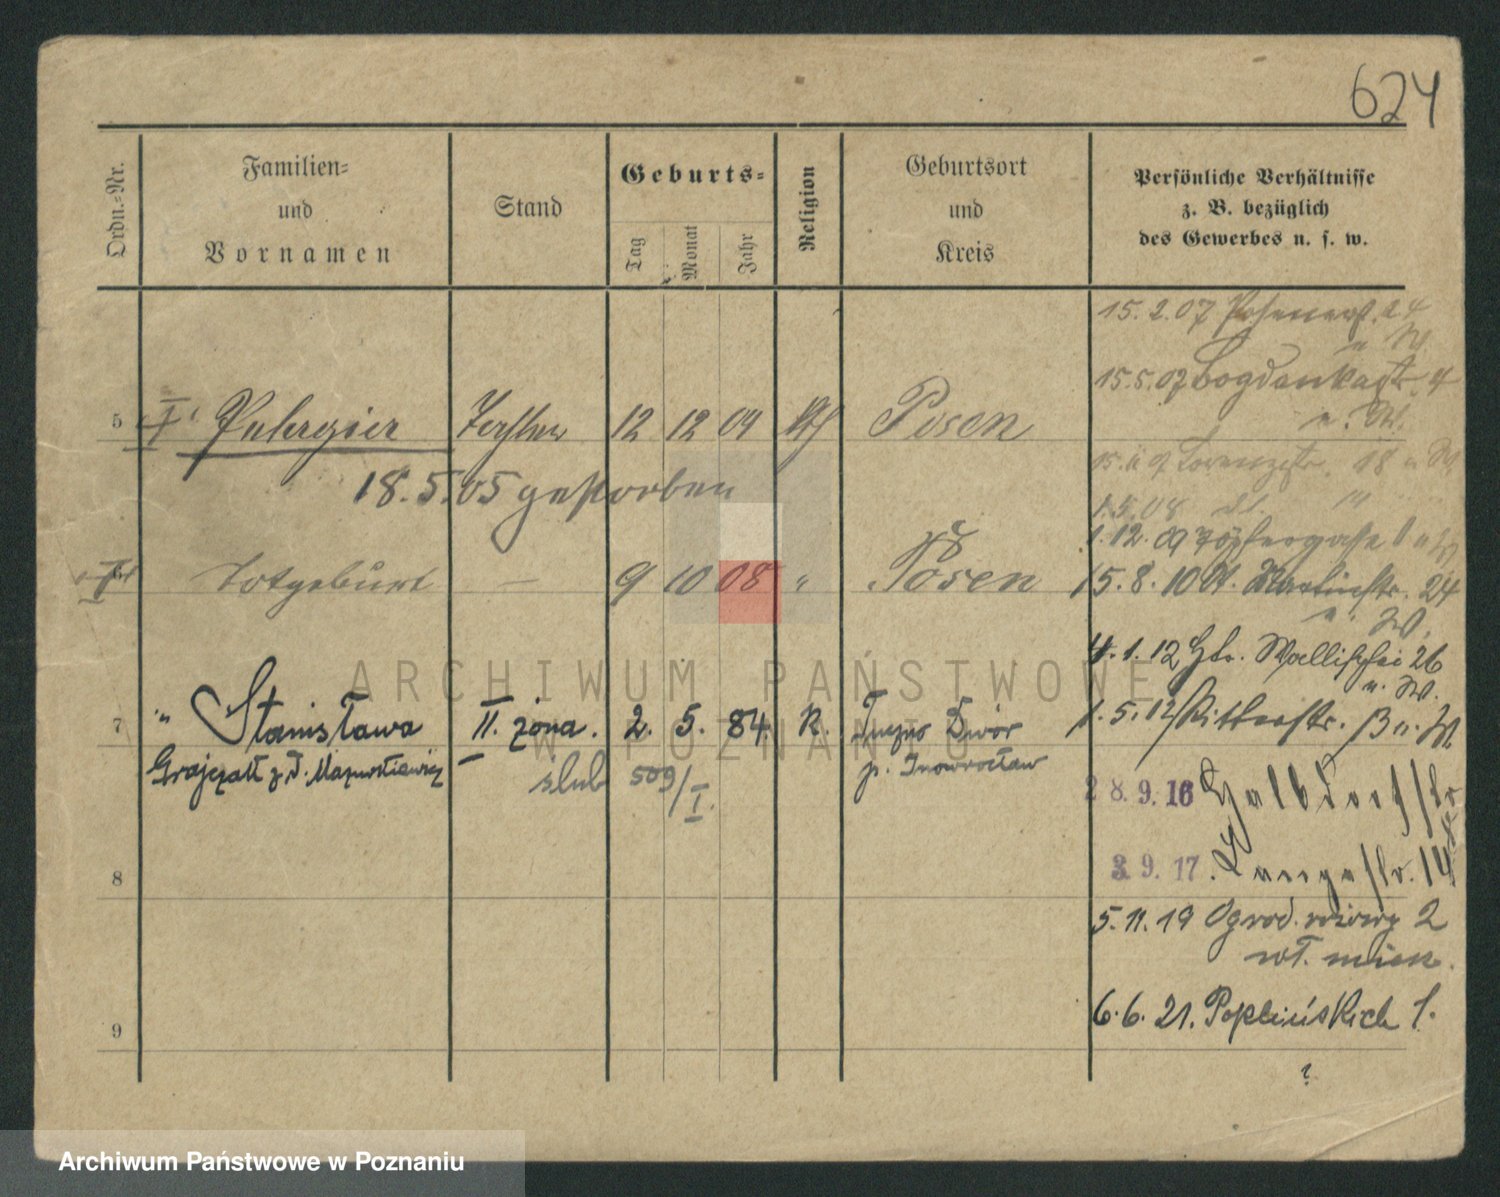 624
Ordn.-Nr.
Familien-
und
Vornamen
Stand
Geburts-
Tag
Monat
Jahr
Religion
Geburtsort
und
Kreis
Persönliche Verhältnisse
z. B. bezüglich
des Gewerbes u. s. w.
15.2.07 24
u W
15.5.07 Bogdankastr. 4
u. W.
5 Pelagia Tochter 12 12 04 Posen
18.5.05 gestorben
07 Lorenzstr. 18 u W
1.5.08
1.12.09 Töpfergasse
6 Totgeburt — 9 10 08 " Posen
15.8.10 St. Martinstr. 24
u. W.
4.1.12 Wallischei 26
u. W.
7 " Stanisława II. żona. 2. 5. 84. K. Dwór
1.5.12 Ritterstr.
Grajczak z d. Mazurkiewicz ślub 509/I. p. Inowrocław
28.9.16 Halbdorfstr
8 3.9.17. Langestr. 14
5.11.19 Ogrod. 2
wł. miesz.
9 6.6.21. Poplińskich 1.
ARCHIWUM PAŃSTWOWE
W POZNANIU
Archiwum Państwowe w Poznaniu